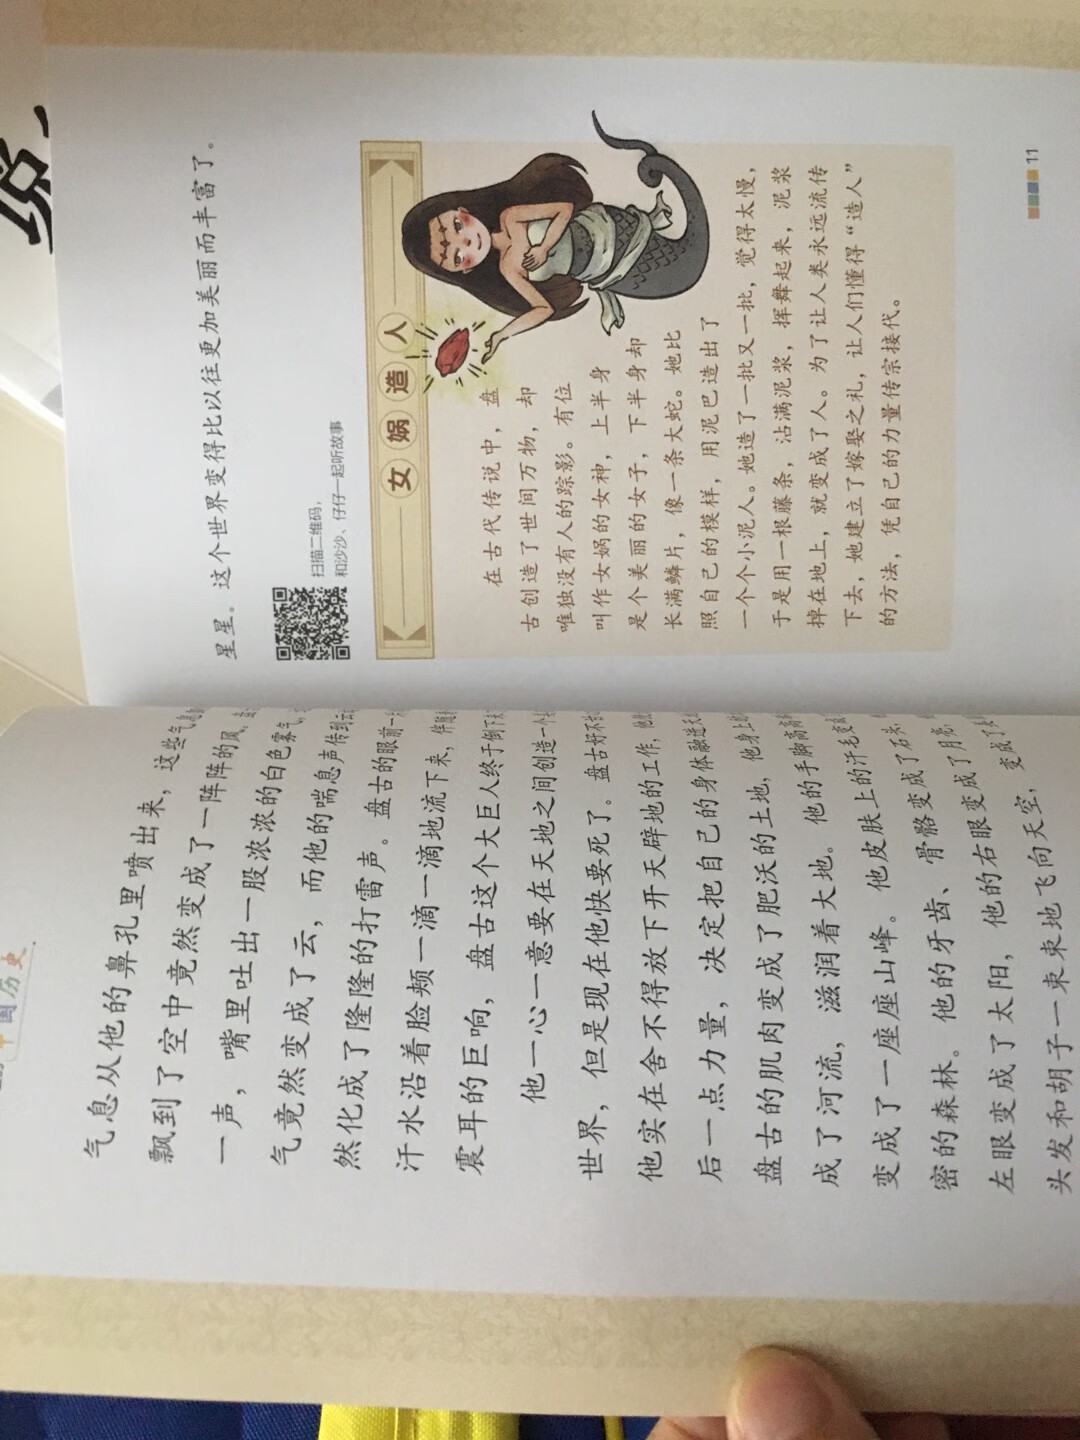 中国历史
气息从他的鼻孔里喷出来，这些气息
飘到了空中竟然变成了一阵阵的风，
一声，嘴里吐出一股浓浓的白色雾气，
气竟然变成了云，而他的喘息声传到云
然化成了隆隆的打雷声。盘古的眼前一
汗水沿着脸颊一滴一滴地流下来，伴随
震耳的巨响，盘古这个大巨人终于倒下
他一心一意要在天地之间创造一个
世界，但是现在他快要死了。盘古好不
他实在舍不得放下开天辟地的工作，他
后一点力量，决定把自己的身体融进
盘古的肌肉变成了肥沃的土地，他身上
成了河流，滋润着大地。他的手脚高高
变成了一座座山峰。他皮肤上的汗毛变
密的森林。他的牙齿、骨骼变成了石头
左眼变成了太阳，他的右眼变成了月亮
头发和胡子一束束地飞向天空，变成了
星星。这个世界变得比以往更加美丽而丰富了。
扫描二维码，
和沙沙、仔仔一起听故事
女娲造人
在古代传说中，盘
古创造了世间万物，却
唯独没有人的踪影。有位
叫作女娲的女神，上半身
是个美丽的女子，下半身却
长满鳞片，像一条大蛇。她比
照自己的模样，用泥巴造出了
一个个小泥人。她造了一批又一批，觉得太慢，
于是用一根藤条，沾满泥浆，挥舞起来，泥浆
掉在地上，就变成了人。为了让人类永远流传
下去，她建立了嫁娶之礼，让人们懂得“造人”
的方法，凭自己的力量传宗接代。
11